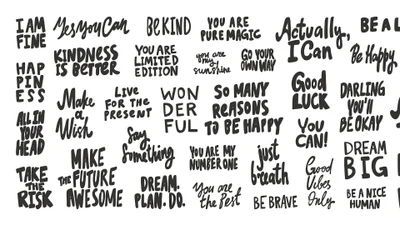 I AM
FINE
Yes You Can
BE KIND
YOU ARE
PURE MAGIC
Actually,
I Can
BE A L
HAP
PIN
ESS
KINDNESS
is BETTER
YOU ARE
LIMITED
EDITION
you are
my
sunshine
GO YOUR
OWN WAY
Be Happy
Good
LUCK
ALL IN
YOUR
HEAD
Make
a
Wish
LIVE
FOR THE
PRESENT
WON
DER
FUL
SO MANY
REASONS
TO BE HAPPY
DARLING
YOU'll
BE OKAY
YOU
CAN!
Say
Something
TAKE
THE
RISK
MAKE
THE FUTURE
AWESOME
DREAM.
PLAN. DO.
YOU ARE MY
NUMBER ONE
You are
the Best
just
breath
BE BRAVE
Good
Vibes
Only
DREAM
BIG
BE A NICE
HUMAN